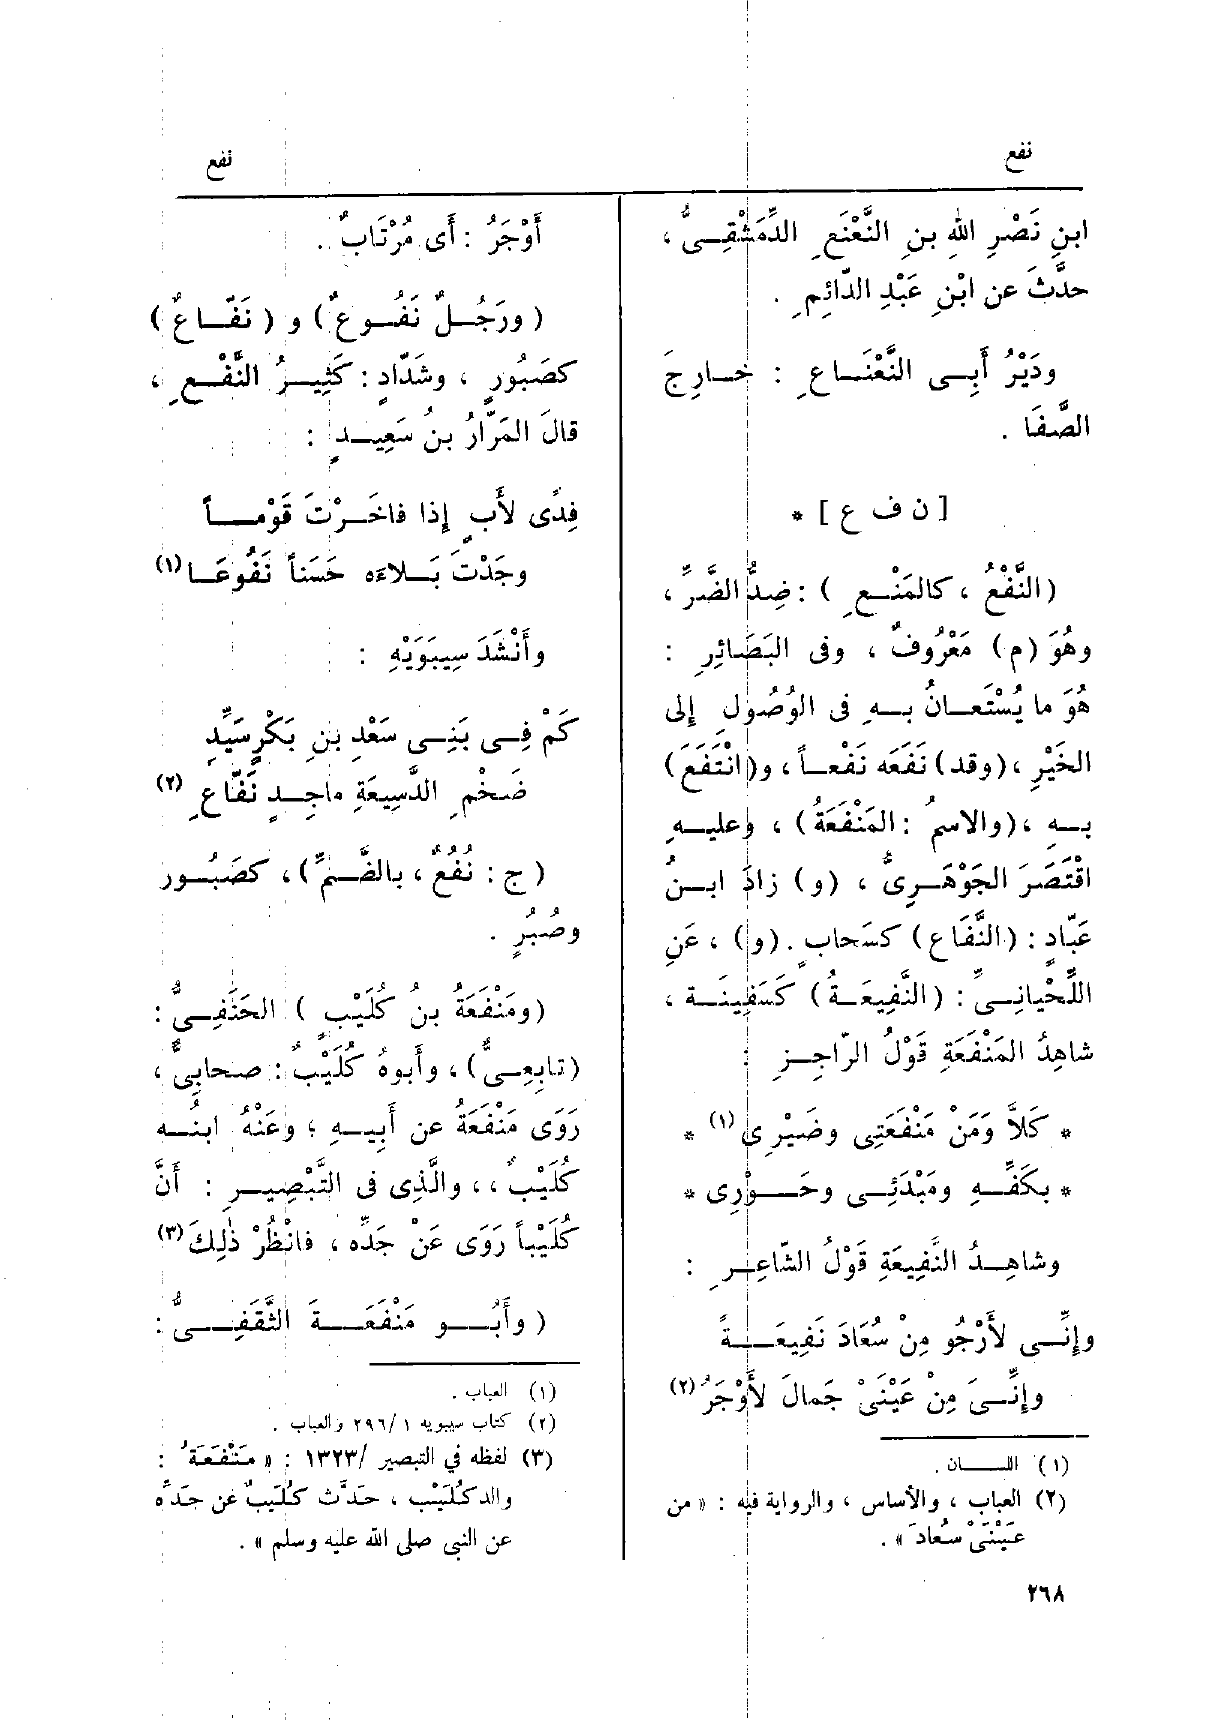 نفع
نفع
ابنِ نَصْرِ اللهِ بنِ النَّعْنَعِ الدِّمَشْقِىُّ ،
حدَّثَ عن ابْنِ عَبْدِ الدّائِمِ .
ودَيْرُ أَبِى النَّعْنَاعِ : خارِجَ
الصَّفَا .
[ ن ف ع ] *
(النَّفْعُ ، كالمَنْعِ ) : ضِدُّ الضَّرِّ ،
وهُوَ (م) مَعْرُوفٌ ، وفى البَصَائِرِ :
هُوَ ما يُسْتَعانُ بهِ فى الوُصُولِ إلى
الخَيْرِ ، (وقد) نَفَعَه نَفْعاً ، و(انْتَفَعَ)
بهِ ، (والاسمُ : المَنْفَعَةُ) ، وعليهِ
اقْتَصَرَ الجَوْهَرِىُّ ، (و) زادَ ابنُ
عَبّادٍ : (النَّفَاع) كسَحابٍ . (و) ، عَنِ
اللِّحْيانِىِّ : (النَّفِيعَةُ) كَسَفِينَة ،
شاهِدُ المَنْفَعَةِ قَوْلُ الرّاجِزِ :
* كَلاَّ وَمَنْ مَنْفَعَتِى وضَيْرِى(١) *
* بكَفِّهِ ومَبْدَئِى وحَوْرِى *
وشاهِدُ النَّفِيعَةِ قَوْلُ الشّاعِرِ :
وإنِّى لأَرْجُو مِنْ سُعَادَ نَفِيعَةً
وإنِّىَ مِنْ عَيْنَىْ جَمالَ لأَوْجَرُ(٢)
(١) اللسان .
(٢) العباب ، والأساس ، والرواية فيه : « من
عَيْنَىْ سُعادَ » .
أَوْجَرُ : أَى مُرْتَابٌ .
( ورَجُلٌ نَفُوعٌ) و ( نَفّاعٌ )
كصَبُورٍ ، وشَدّادٍ : كَثِيرُ النَّفْعِ ،
قالَ المَرّارُ بنُ سَعِيدٍ :
فِدًى لأَبٍ إذا فاخَرْتَ قَوْماً
وجَدْتَ بَلاءَه حَسَناً نَفُوعَا(١)
وأَنْشَدَ سِيبَوَيْهِ :
كَمْ فِى بَنِى سَعْدِ بنِ بَكْرٍ سَيِّدٍ
ضَخْمِ الدَّسِيعَةِ ماجِدٍ نَفّاعِ(٢)
( ج : نُفُعٌ ، بالضَّمِّ ) ، كصَبُور
وصُبُرٍ .
(ومَنْفَعَةُ بنُ كُلَيْبٍ ) الحَنَفِىُّ :
(تابِعِىٌّ) ، وأَبوهُ كُلَيْبٌ : صحابِىٌّ ،
رَوَى مَنْفَعَةُ عن أَبِيهِ ؛ وعَنْهُ ابنُه
كُلَيْبٌ ، ، والَّذِى فى التَّبْصِيرِ : أَنَّ
كُلَيْباً رَوَى عَنْ جَدِّه ، فانْظُرْ ذٰلِكَ(٣)
( وأَبُو مَنْفَعَةَ الثَّقَفِىُّ :
(١) العباب .
(٢) كتاب سيبويه ١ /٢٩٦ والعباب .
(٣) لفظه في التبصير /١٣٢٣ : « مَنْفَعَةُ :
والد كُلَيْب ، حَدَّث كُلَيْبٌ عن جَدِّه
عن النبى صلى الله عليه وسلم » .
٢٦٨